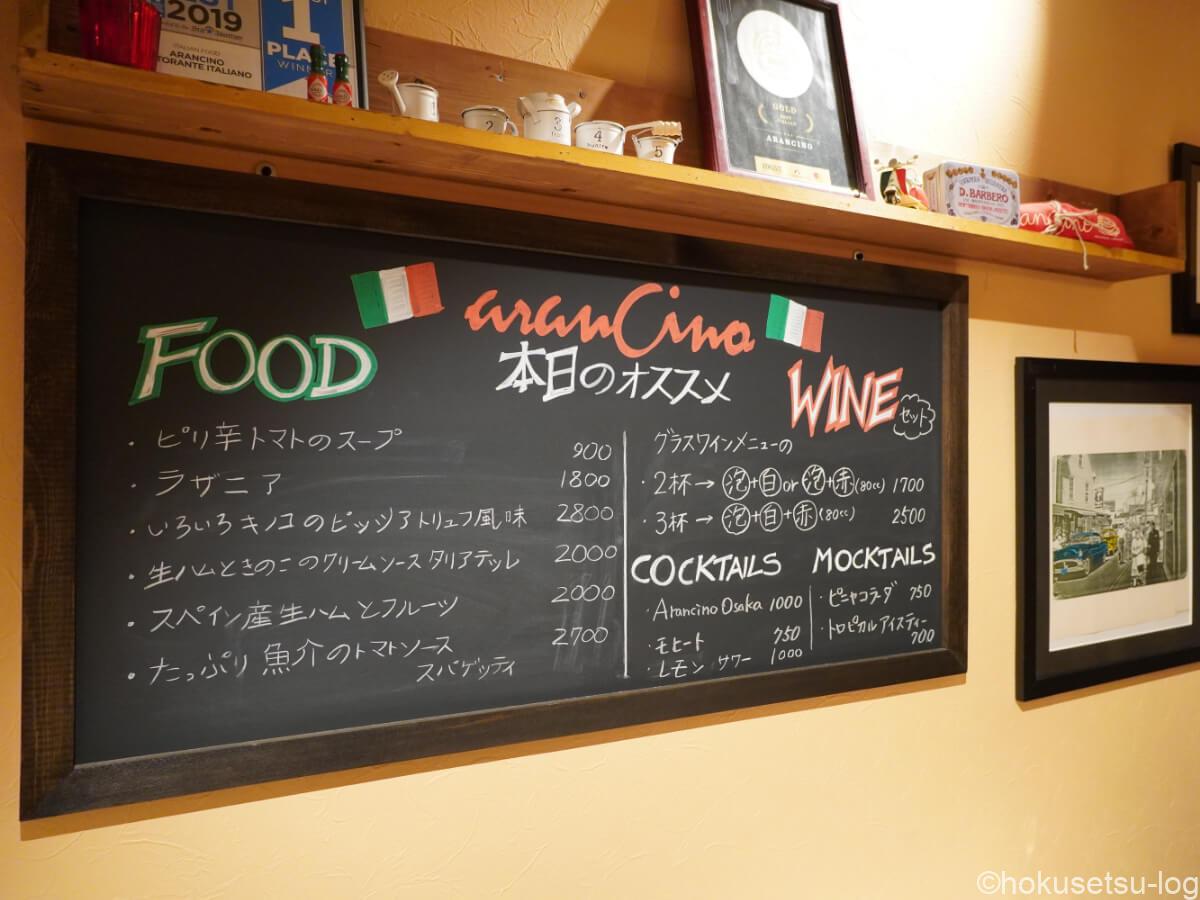 2019
ITALIAN FOOD
ARANCINO
RISTORANTE ITALIANO
1
PLACE
WINNER
2
3
4
5
GOLD
ARANCINO
D. BARBERO
FOOD
aranCino
本日のオススメ
WINE
セット
・ピリ辛トマトのスープ 900
・ラザニア 1800
・いろいろキノコのピッツァトリュフ風味 2800
・生ハムときのこのクリームソース タリアテッレ 2000
・スペイン産生ハムとフルーツ 2000
・たっぷり魚介のトマトソース 2700
スパゲッティ
グラスワインメニューの
・2杯→泡+白or泡+赤(80cc) 1700
・3杯→泡+白+赤(80cc) 2500
COCKTAILS
・Arancino Osaka 1000
・モヒート 750
・レモンサワー 1000
MOCKTAILS
・ピニャコラーダ 750
・トロピカルアイスティー
700
©hokusetsu-log